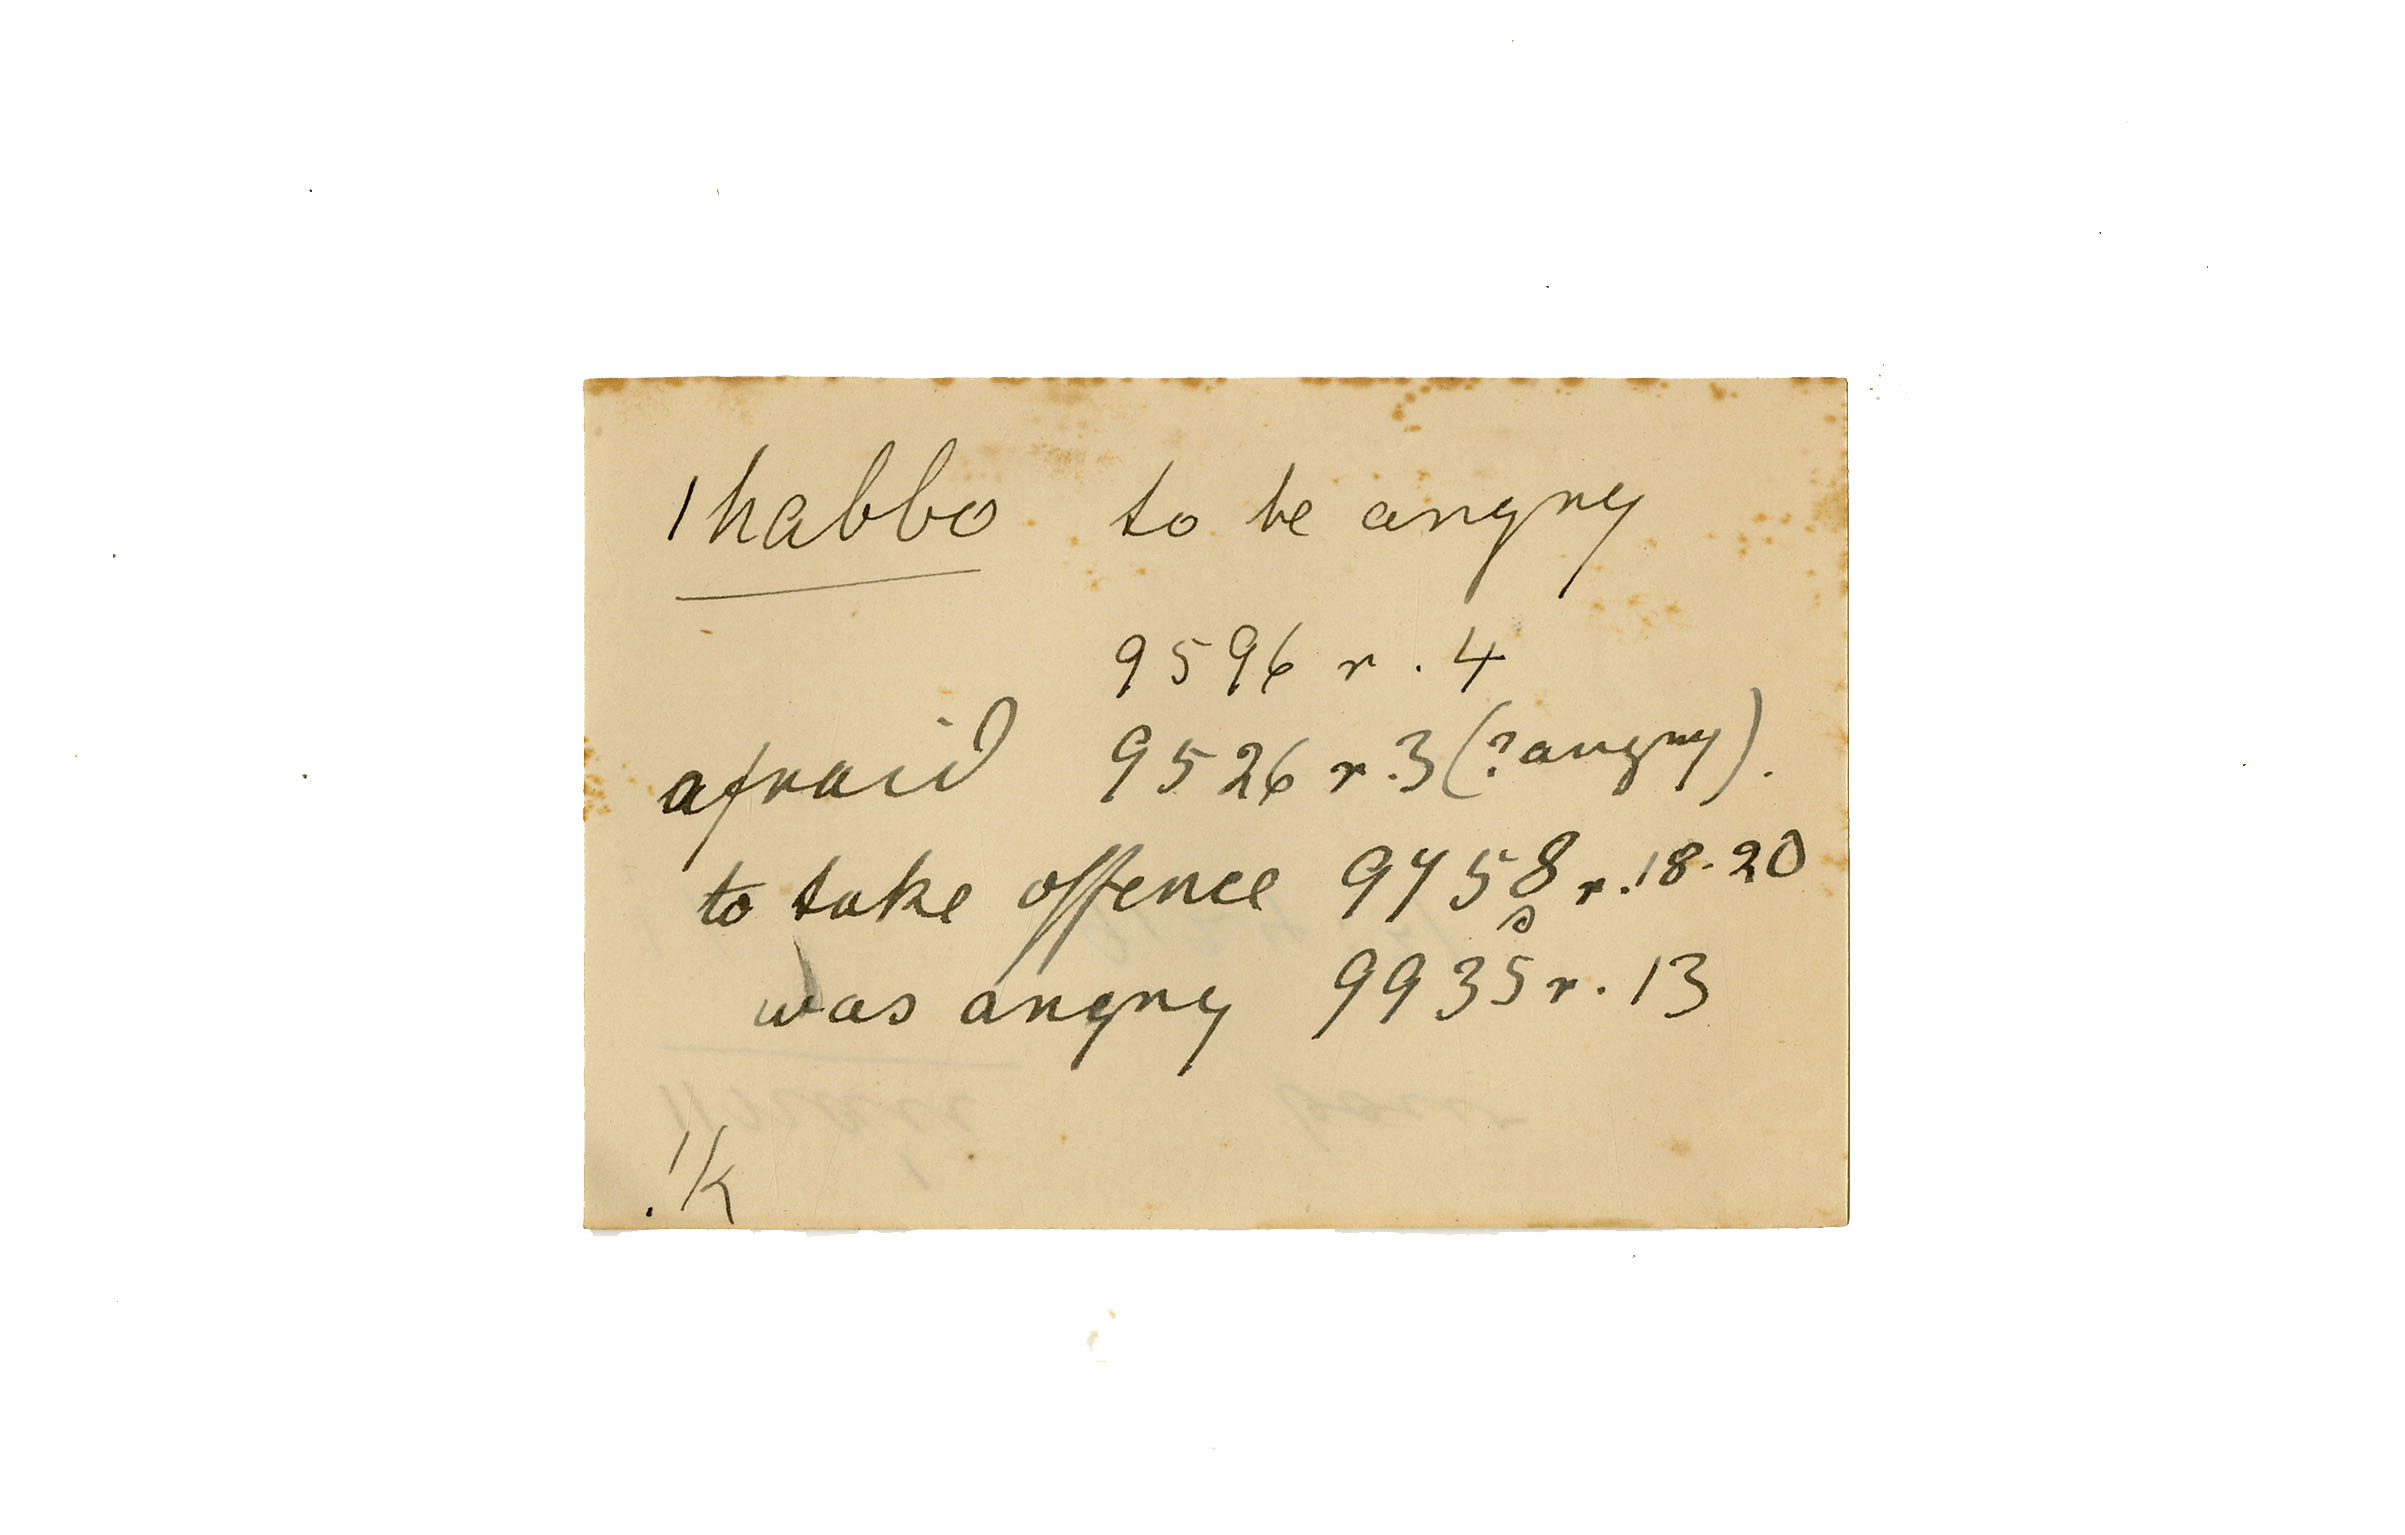 ǀhabbo to be angry
9596 r. 4
afraid 9526 r. 3 (? angry).
to take offence 9458 r. 18-20
was angry 9935 r. 13
!k